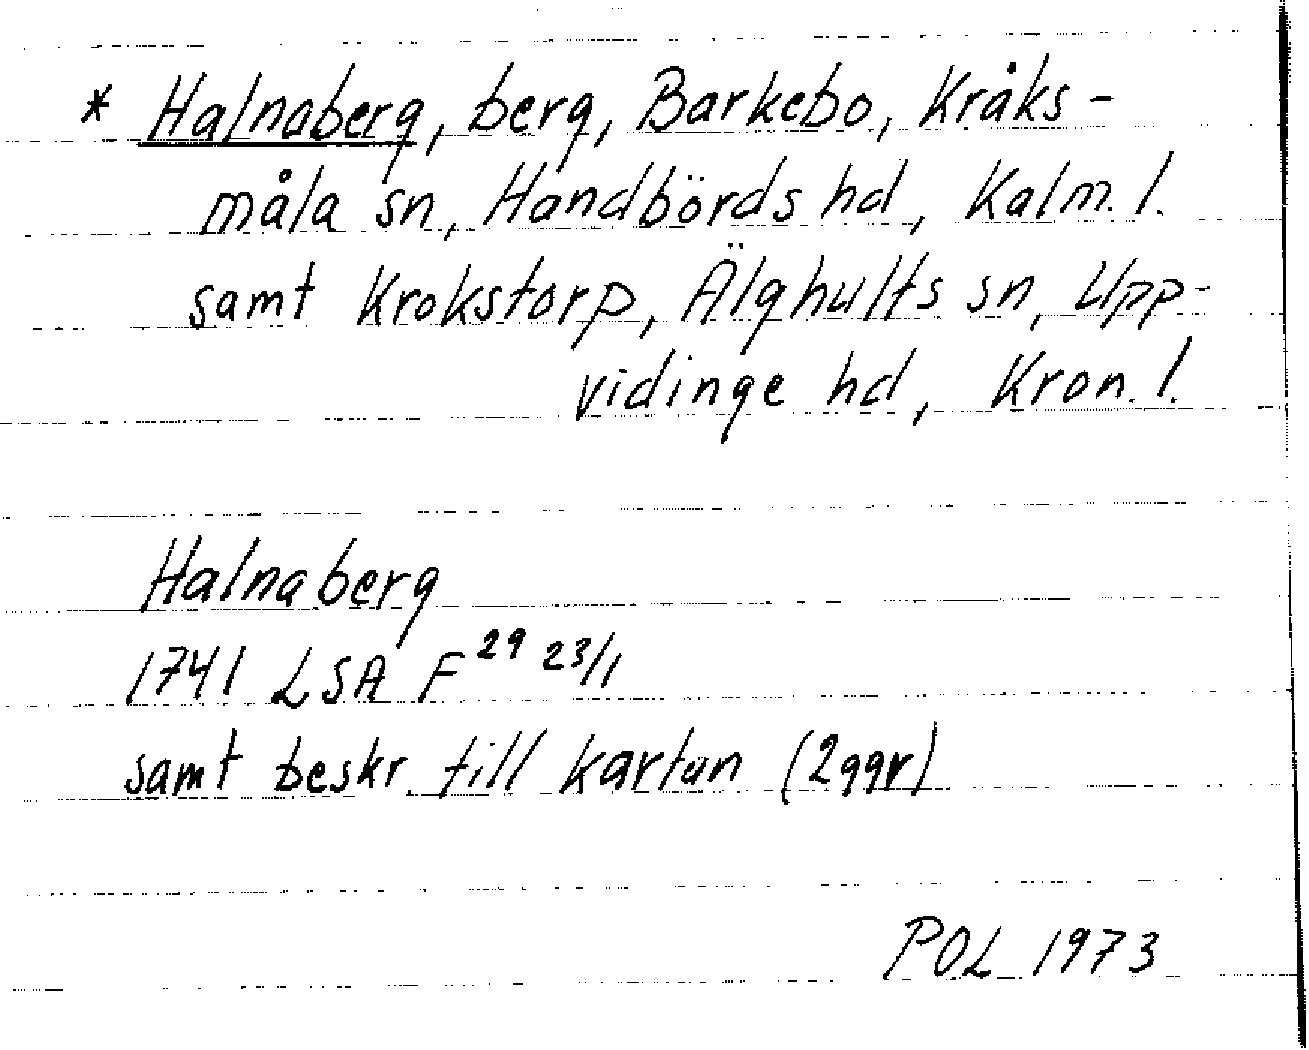 * Halnaberg, berg, Barkebo, Kråks-
måla sn, Handbörds hd, Kalm. l.
samt Krokstorp, Älghults sn, Upp-
vidinge hd, Kron. l.
Halnaberg
1741 LSA F 29 23/1
samt beskr. till kartan (2ggr)
POL 1973